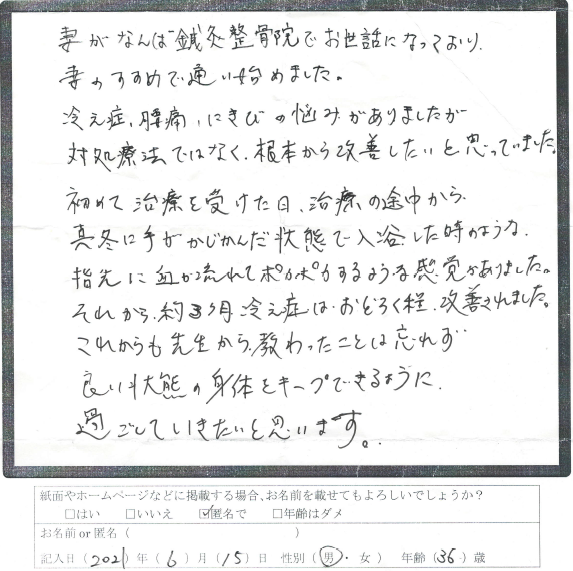 妻がなんば鍼灸整骨院でお世話になっており、
妻のすすめで通い始めました。
冷え症、腰痛、にきびの悩みがありましたが
対処療法ではなく、根本から改善したいと思っていました。
初めて治療を受けた日、治療の途中から、
真冬に手がかじかんだ状態で入浴した時のような、
指先に血が流れてポカポカするような感覚がありました。
それから、約3ヶ月冷え症はおどろく程、改善されました。
これからも先生から、教わったことは忘れず
良い状態の身体をキープできるように、
過ごしていきたいと思います。
紙面やホームページなどに掲載する場合、お名前を載せてもよろしいでしょうか？
□はい □いいえ ☑匿名で □年齢はダメ
お名前or匿名（ ）
記入日（2021）年（6）月（15）日 性別（男・女） 年齢（36）歳